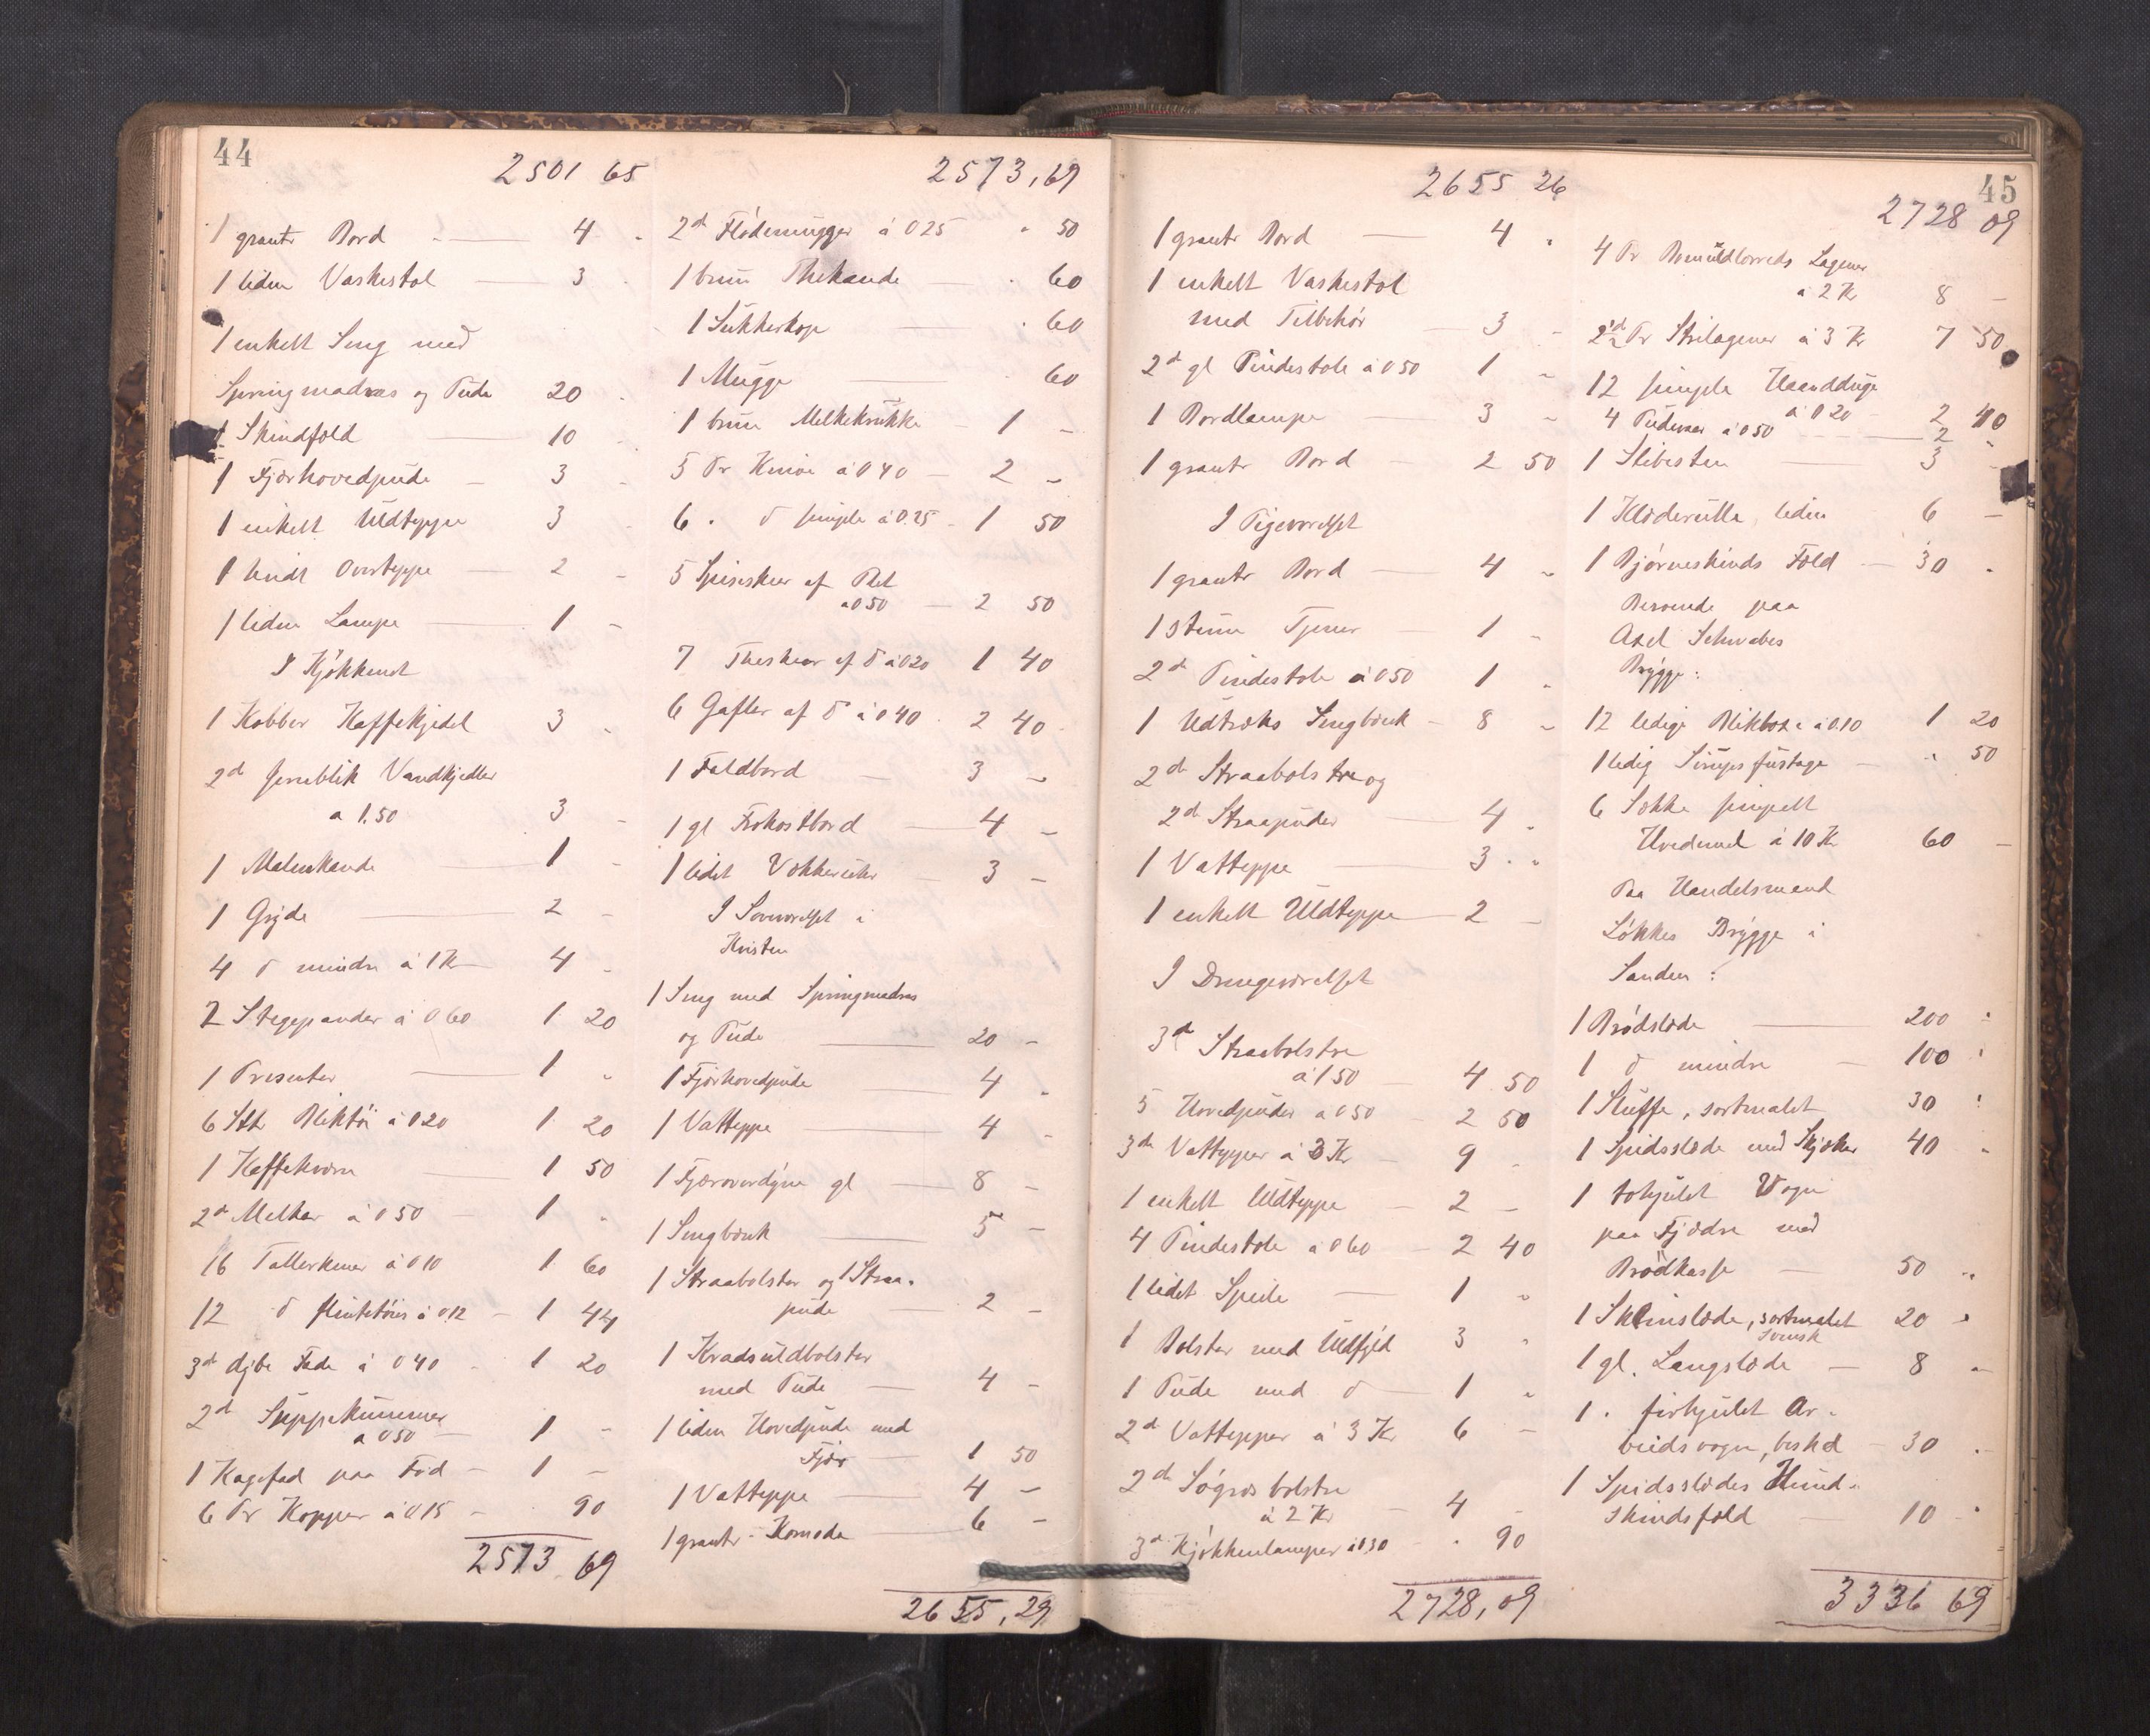 44
2501 65
1 grantr Bord - 4 -
1 liden Vaskestol - 3
1 enkelt Seng med
Springmadras og Pude 20 -
1 Skindfeld 10
1 Fjærhovedpude - 3 -
1 enkelt Uldteppe 3
1 hvidt Overteppe - 2 -
1 liden Lampe - 1 -
I Kjøkkenet
1 Kobber Kaffekjedel 3 -
2d jernblik Vandkjedler
a 1.50 3 -
1 Malmkande 1 -
1 Gryde - 2 -
4 d mindre à 1 Kr 4 -
2 Stegepander à 0 60 1 20
1 Presenter - 1 "
6 Stk Bliktøi à 0 20 1 20
1 Kaffekværn 1 50
2d Melkar à 0 50 - 1 "
16 Tallerkener à 0 10 1 60
12 d flintetøis à 0.12 - 1 44
3d dybe Fade à 0 40 - 1 20
2d Suppekummer
a 0 50 - 1 -
1 Kagefad paa Fod - 1 -
6 Pr Kopper à 0 15 - 90
2573 69
2573,69
2d Flødemugger à 0 25 " 50
1 brun Thekande - 60
1 Sukkerkop - 60
1 Mugge - 60
1 brun Melkekrukke - 1 -
5 Pr Knive à 0 40 - 2 -
6 " d simple à 0.25 - 1 50
5 Spiseskeer af Plet
a 0 50 - 2 50
7 Theskeer af d à 0 20 1 40
6 Gafler af d à 0 40 - 2 40
1 Foldbord - 3 -
1 gl Frokostbord - 4 -
1 lidet Vækkeruhr - 3 -
I Soveværelset i
Kvisten
1 Seng med Springmadras
og Pude - 20 -
1 Fjærhovedpude 4 "
1 Vatteppe - 4 -
1 Fjæroverdyne gl - 8 -
1 Sengbænk - 5 -
1 Straabolster og 1 Straa-
pude - 2 -
1 Kradsuldbolster
med Pude - 4 -
1 liden Hovedpude med
Fjær - 1 50
1 Vatteppe - 4 -
1 grantr - Komode - 6 -
2655,29
2655 26
1 grantr Bord - 4 "
1 enkelt Vaskestol
med Tilbehør - 3 -
2d gl Pindestole à 0 50 1 -
1 Bordlampe - 3 -
1 grantr Bord - 2 50
I Pigeværelset
1 grantr Bord - 4 "
1 stum Tjener - 1 -
2d Pindestole à 0 50 1 "
1 Udtræks Sengbænk - 8 -
2d Straabolstre og
2d Straapuder - 4 "
1 Vatteppe - 3 "
1 enkelt Uldteppe - 2 -
I Drengeværelset
3d Straabolstre
à 1 50 - 4 50
5 Hovedpuder a 0 50 - 2 50
3de Vattepper à 3 Kr - 9 "
1 enkelt Uldteppe - 2 -
4 Pindestole a 0 60 - 2 40
1 lidet Speile - 1 "
1 Bolster med Uldfyld 3 "
1 Pude med d - 1 "
2d Vattepper à 3 Kr 6 -
2d Søgræsbolstre
à 2 Kr - 4 -
3d Kjøkkenlamper à 0 30 - " 90
2728,09
45
2728 09
4 Pr Bomuldlerreds Lagener
a 2 Kr 8 -
2½ Pr Strilagener à 3 Kr 7 50
12 simple Haandduge
à 0 20 - 2 40
4 Pudevar à 0 50 - 2 "
1 Slibesten - 3 -
1 Klæderulle, liden - 6 -
1 Bjørneskinds Feld - 30 "
Beroende paa
Axel Schwabes
Brygge:
12 ledige Blikboxe à 0.10 1 20
1 ledig Sirupsfustage - " 50
6 Sække simpelt
Hvedemel à 10 Kr 60 -
Paa Handelsmand
Løkkes Brygge i
Sanden:
1 Brødslæde - 200 "
1 d mindre - 100 "
1 Sluffe, sortmalet 30 "
1 Spidsslæde med Skjæker 40 "
1 tohjulet Vogn
paa Fjædre med
Brødkasse - 50 "
1 Skrinslæde, sortmalet 20 "
svensk
1 gl. Langslæde - 8 "
1 " firhjulet Ar-
beidsvogn, besked - 30 "
1 Spidsslædes Hund-
skindsfeld - 10 "
3336 69